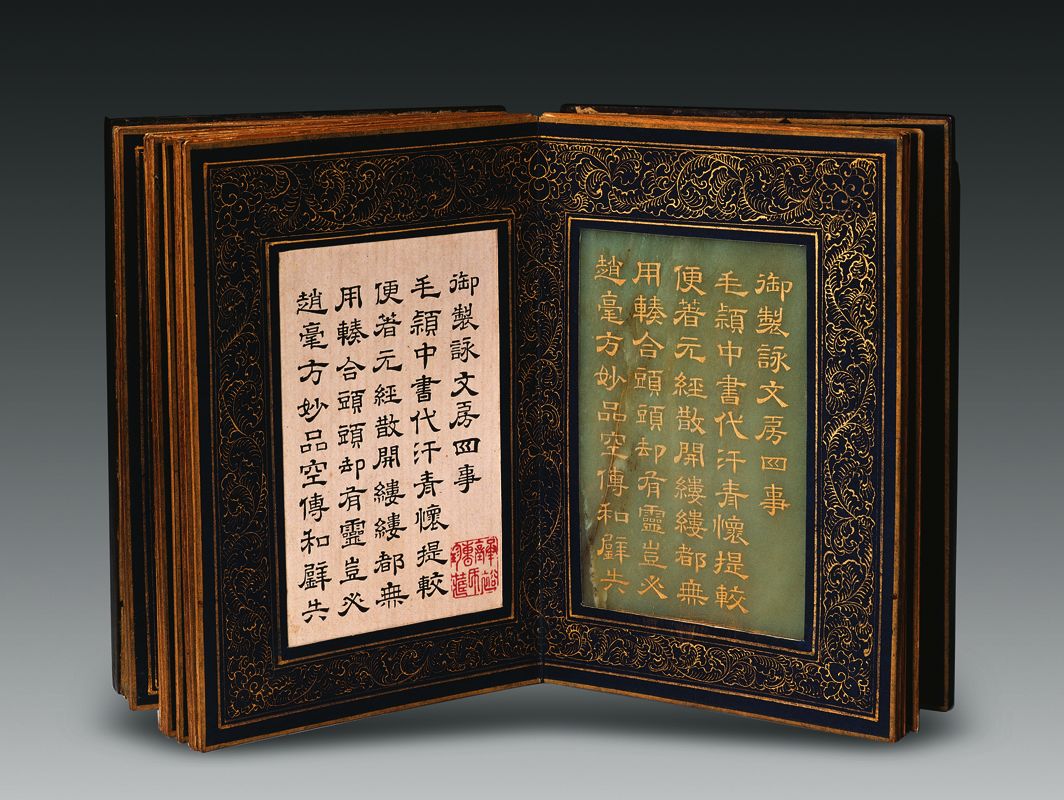 御製詠文房四事
毛穎中書代汗青懷提較
便著元經散開縷縷都無
用輳合頭頭却有靈豈必
趙毫方妙品空傳和璧共
御製詠文房四事
毛穎中書代汗青懷提較
便著元經散開縷縷都無
用輳合頭頭却有靈豈必
趙毫方妙品空傳和璧共